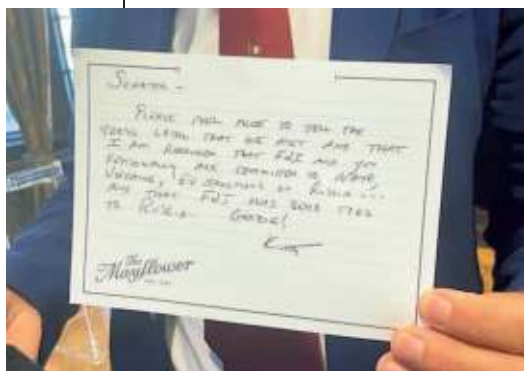 SENATOR -
PLEASE FEEL FREE TO TELL THE
THAT WE MET AND THAT
I AM REASSURED THAT FdI AND YOU
PERSONALLY ARE COMMITTED TO NATO,
UKRAINE, EU SANCTIONS ON RUSSIA ...
AND THAT FdI HAS ZERO TIES
TO RUSSIA. GRAZIE!
The
Mayflower